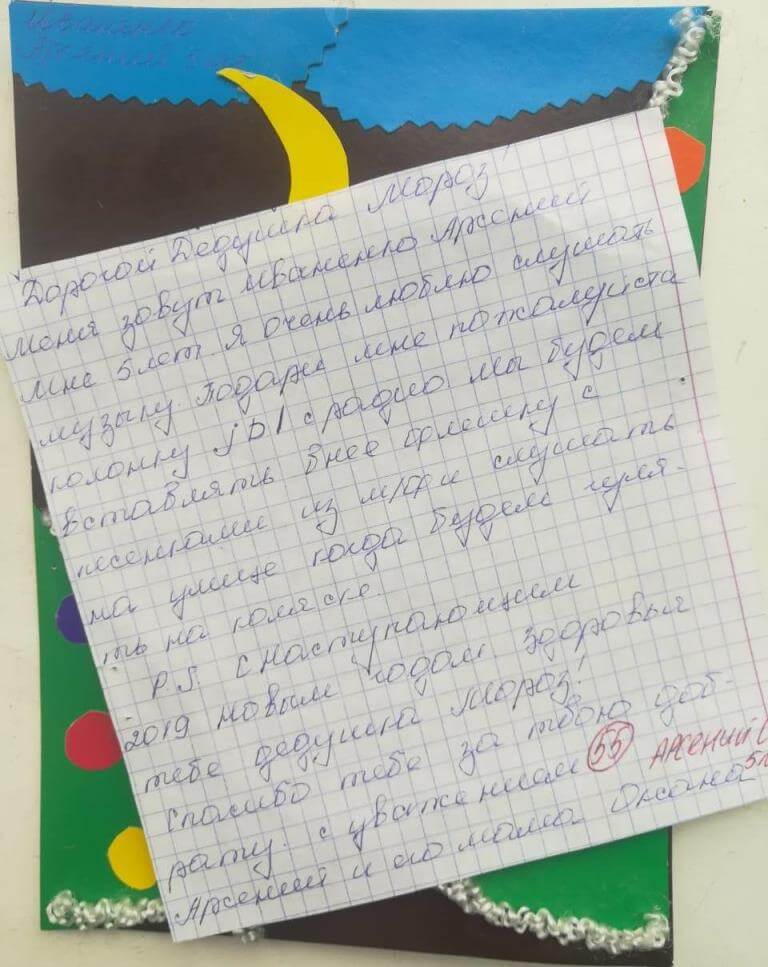 Иваненко
Арсений 5 лет
Дорогой Дедушка Мороз!
меня зовут Иваненко Арсений
мне 5 лет. я очень люблю слушать
музыку. подари мне пожалуйста
колонку jbl с радио мы будем
вставлять в нее флешку с
песенками из м/ф и слушать
на улице когда будем гуля-
ть на коляске.
P.S. с наступающим
2019 новым годом. здоровья
тебе дедушка Мороз!
спасибо тебе за твою доб-
рату. с уважением 55 Арсений
Арсений и его мама Оксана 5л